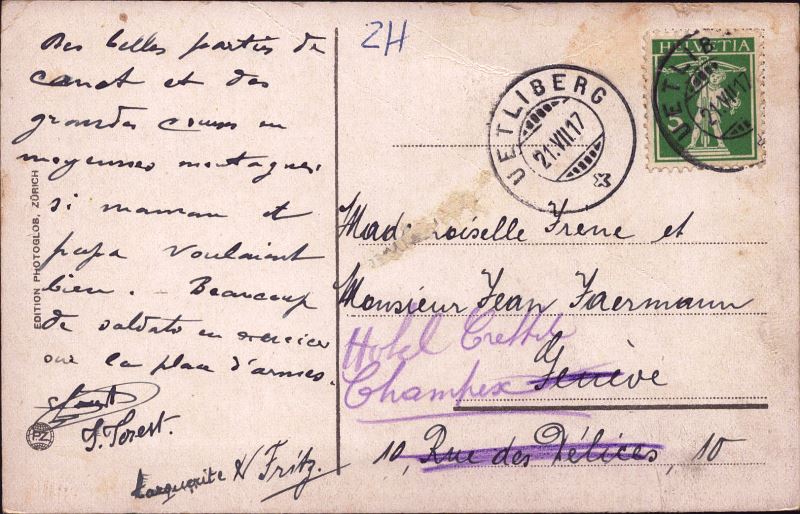 Des belles parties de
canot et des
grandes courses en
moyennes montagnes
si maman et
papa voulaient
bien. - Beaucoup
de soldats en exercice
sur la place d'armes.
Marguerite & Fritz.
EDITION PHOTOGLOB, ZÜRICH
PZ
2H
UETLIBERG
21.VII.17
HELVETIA
5
UETLIB
21.VII.17
Mademoiselle Irene et
Monsieur Jean Faermann
Hotel
Champex
Genève
10, Rue des Délices, 10